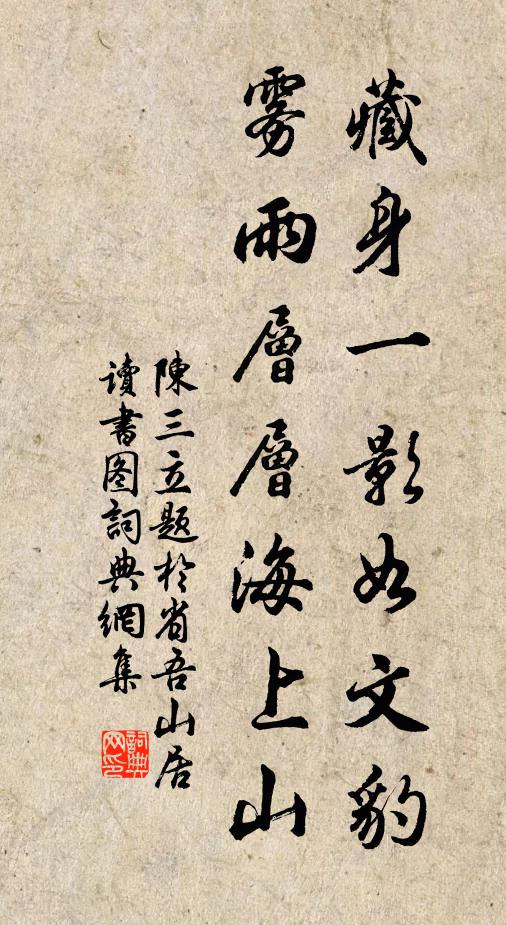 藏身一影如文豹
雾雨層層海上山
陳三立題於省吾山居
讀書图詞典網集
詞典
网印